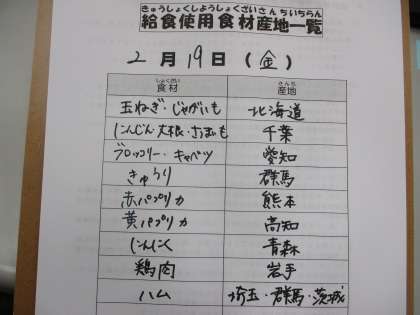 きゅうしょくしようしょくざいさんちいちらん
給食使用食材産地一覧
2月19日(金)
しょくざい さんち
食材 産地
玉ねぎ・じゃがいも 北海道
にんじん・大根・さつまいも 千葉
ブロッコリー・キャベツ 愛知
きゅうり 群馬
赤パプリカ 熊本
黄パプリカ 高知
にんにく 青森
鶏肉 岩手
ハム 埼玉・群馬・茨城